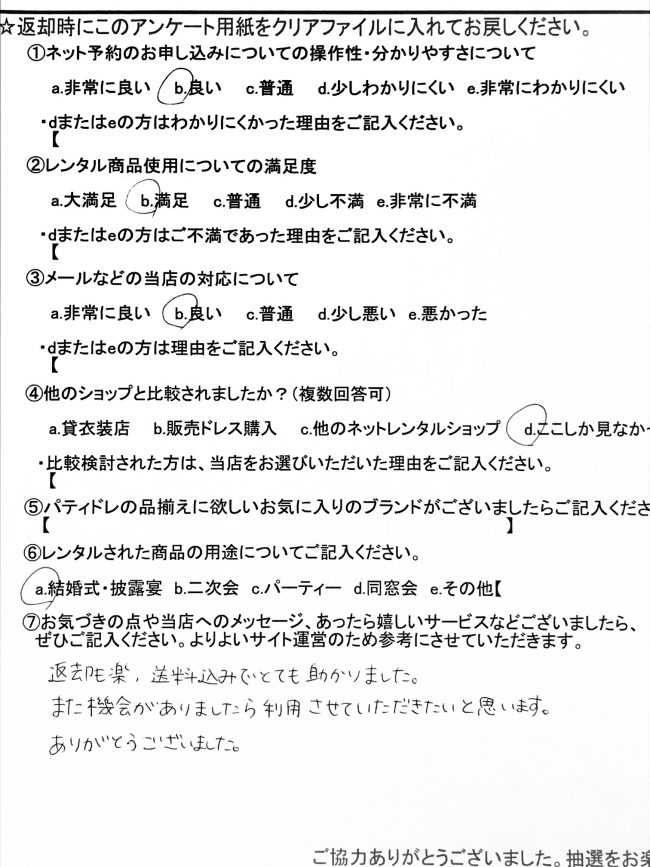 ☆返却時にこのアンケート用紙をクリアファイルに入れてお戻しください。
①ネット予約のお申し込みについての操作性・分かりやすさについて
a.非常に良い b.良い c.普通 d.少しわかりにくい e.非常にわかりにくい
・dまたはeの方はわかりにくかった理由をご記入ください。
【
②レンタル商品使用についての満足度
a.大満足 b.満足 c.普通 d.少し不満 e.非常に不満
・dまたはeの方はご不満であった理由をご記入ください。
【
③メールなどの当店の対応について
a.非常に良い b.良い c.普通 d.少し悪い e.悪かった
・dまたはeの方は理由をご記入ください。
【
④他のショップと比較されましたか？（複数回答可）
a.貸衣装店 b.販売ドレス購入 c.他のネットレンタルショップ d.ここしか見なかっ
・比較検討された方は、当店をお選びいただいた理由をご記入ください。
【
⑤パティドレの品揃えに欲しいお気に入りのブランドがございましたらご記入くださ
【 】
⑥レンタルされた商品の用途についてご記入ください。
a.結婚式・披露宴 b.二次会 c.パーティー d.同窓会 e.その他【
⑦お気づきの点や当店へのメッセージ、あったら嬉しいサービスなどございましたら、
ぜひご記入ください。よりよいサイト運営のため参考にさせていただきます。
返却も楽，送料込みでとても助かりました。
また機会がありましたら利用させていただきたいと思います。
ありがとうございました。
ご協力ありがとうございました。抽選をお楽